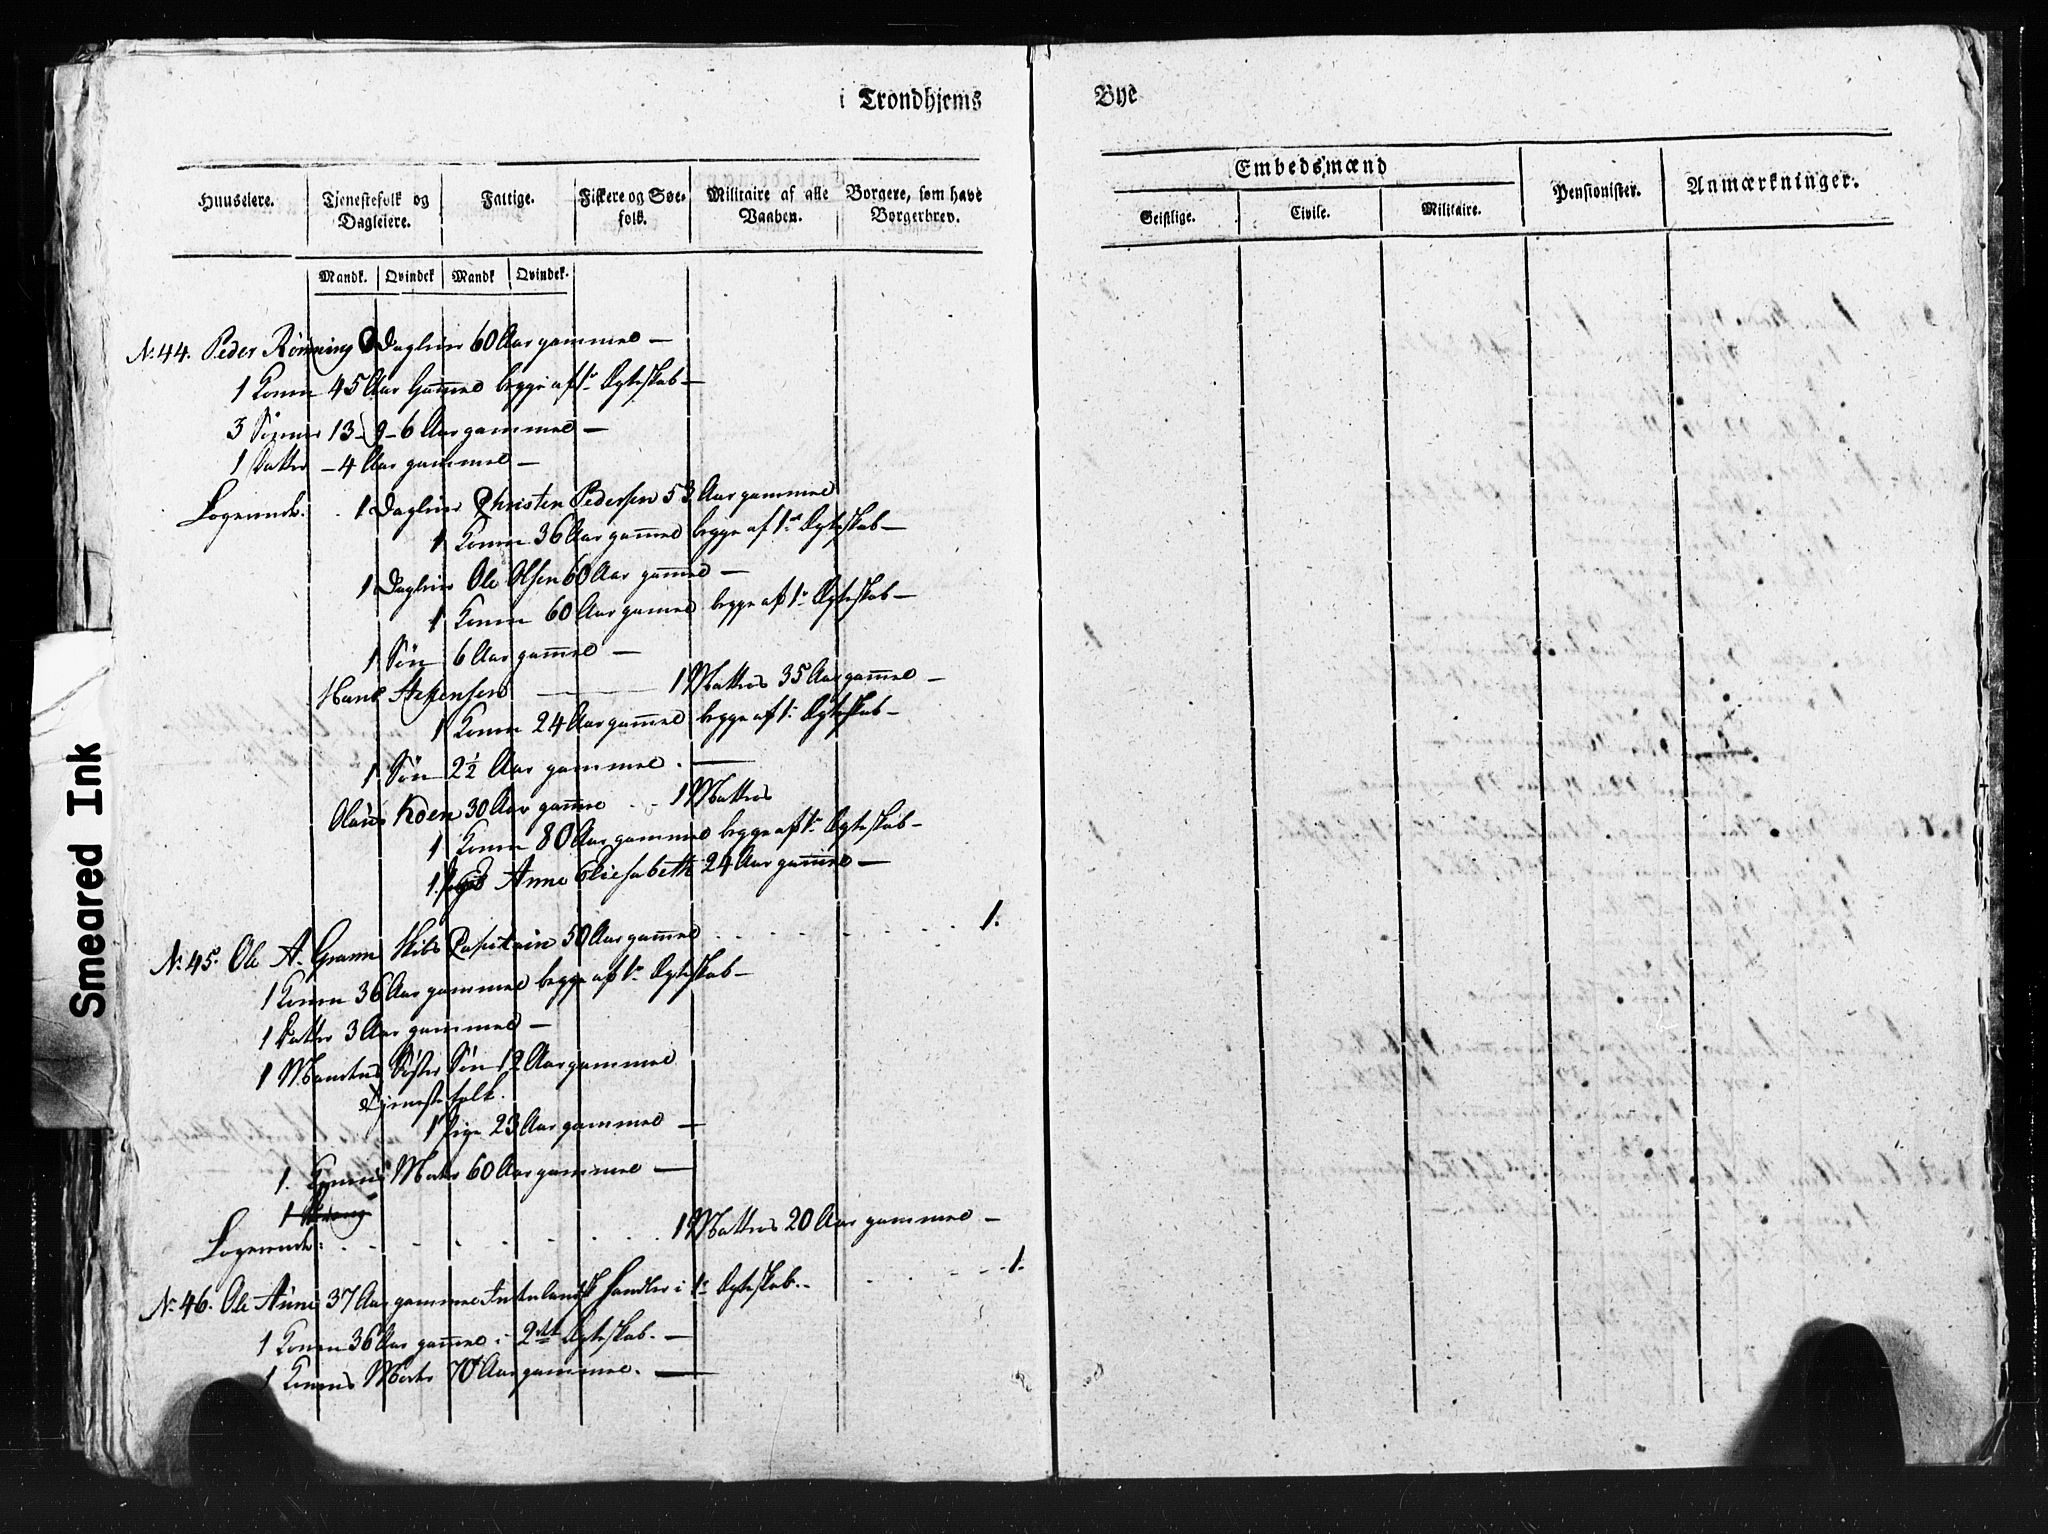 i Trondhjems Bye
Huuseiere. Tjenestefolk og Dagleiere. Fattige. Fiskere og Søefolk. Militaire af alle Vaaben. Borgere, som have Borgerbrev.
Embedsmænd Pensionister. Anmærkninger.
Geistlige. Civile. Militaire.
Mandk. Qvindek Mandk Qvindek.
No 44. Peder Rönning Dagleier 60 Aar gammel —
1 Konne 45 Aar Gam̅el begge af 1te Ægteskab —
3 Sönner 13 - 9 - 6 Aar gammel —
1 Datter — 4 Aar gammel —
Logerende. 1 Dagleier Christen Pedersen 53 Aar gammel
1 Konne 36 Aar gam̅el begge af 1te Ægteskab —
1 Dagleier Ole Olsen 60 Aar gam̅el —
1 Konne 60 Aar gam̅el begge af 1te Ægteskab —
1 Sön 6 Aar gam̅el —
Hans Stephensen — 1 Matros 35 Aar gam̅el —
1 Konne 24 Aar gam̅el begge af 1te Ægteskab —
1 Sön 2½ Aar gammel. —
Olaus Koen 30 Aar gam̅el 1 Matros
1 Konne 80 Aar gammel begge af 1te Ægteskab —
1. Pige Anne Eliesabeth 24 Aar gam̅el —
No 45. Ole A. Gramm Skibs Capitain 50 Aar gam̅el 1.
1 Konne 36 Aar gammel begge af 1te Ægteskab —
1 Datter 3 Aar gammel —
1 Mandens Söster Sön 12 Aar gammel
Tjenestefolk.
1 Pige 23 Aar gammel —
1. Konens Moder 60 Aar gammel —
Logerende: 1 Matros 20 Aar gammel —
No 46. Ole Aune 37 Aar gammel Indenlandsk Handler i 1te Ægteskab. 1.
1 Konne 36 Aar gam̅el i 2det Ægteskab. —
1 Konens Moder 70 Aar gammel. —
Smeared Ink